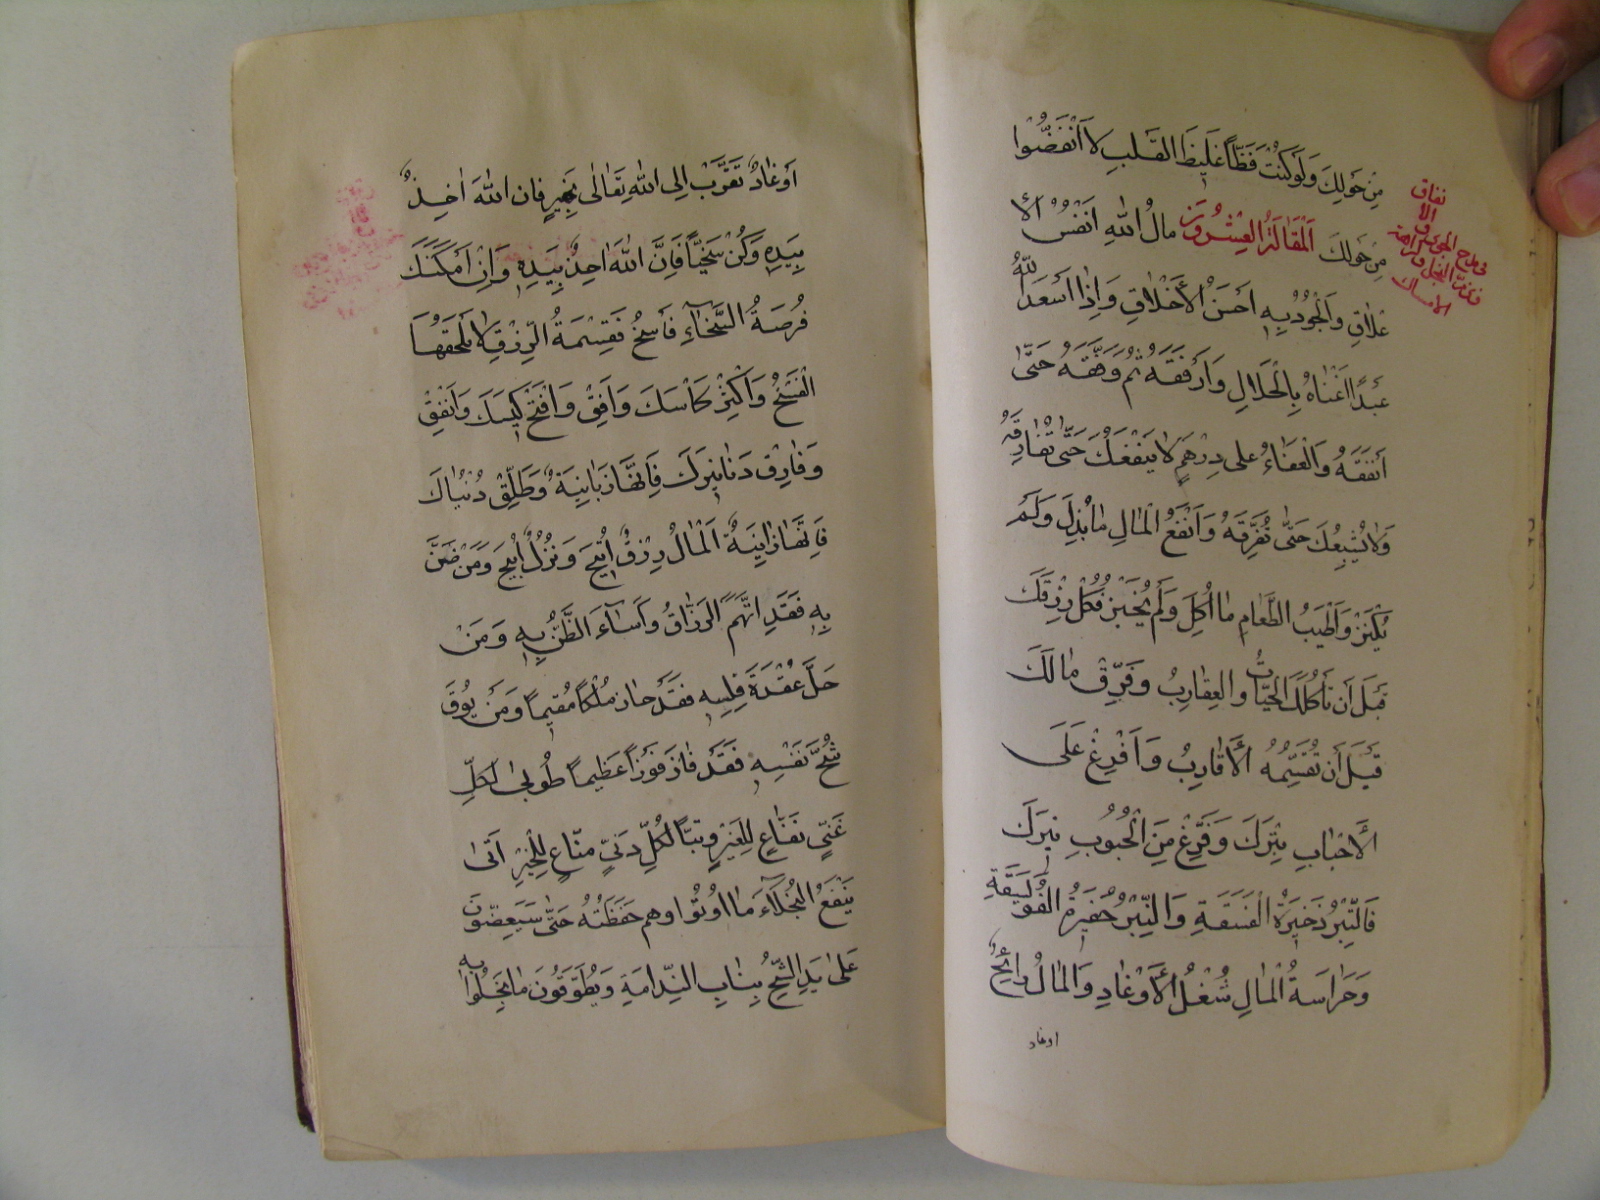 مِنْ حَوْلِكَ وَلَوْ كُنْتَ فَظًّا غَلِيظَ القَلْبِ لَا انْفَضُّوا
مِنْ حَوْلِكَ اَلْمَقَالَةُ الْعِشْرُونَ مالُ اللهِ اَنْفَسُ الأَ
عْلاقِ وَالْجُودُ بِهِ اَحْسَنُ الأَخْلاقِ وَاِذَا اَسْعَدَ اللهُ
عَبْدًا اَغْنَاهُ بِالْحَلَالِ وَاَرْفَقَهُ ثُمَّ وَفَّقَهُ حَتّى
اَنْفَقَهُ وَالْعَفَاءُ على دِرْهَمٍ لا يَنْفَعُكَ حَتّى تُفَارِقَهُ
وَلا يُشْبِعُكَ حَتّى تُفَرِّقَهُ وَاَنْفَعُ الْمَالِ مَا بُذِلَ وَلَمْ
يُكْنَزْ وَاَطْيَبُ الطَّعَامِ مَا اُكِلَ وَلَمْ يُخْبَزْ فَكُلْ رِزْقَكَ
قَبْلَ اَن تَأكُلَكَ الحَيَّاتُ وَالعِقَارِبُ وَفَرِّقْ مَا لَكَ
قَبْلَ اَن تُقَسِّمُهُ الأَقَارِبُ وَاَفْرِغْ عَلَى
الأَحْبَابِ بِتِبْرِكَ وَفَرِّغْ مِنَ الْحُبُوبِ نِبْرَكَ
فَالتِّبْرُ ذَخِيرَةُ الْفَسَقَةِ وَالنِّبْرُ حَفِيرَةُ الْفُوَيْسِقَةِ
وَحَرَاسَةُ الْمَالِ شُغْلُ الأَوْغَادِ وَالمَالُ رَايِحٌ
اوغاد
نفاق
فى مدح الجود
البخل وكراهة
الامساك
اَوْ غَادٌ تَقَرَّبْ اِلى اللهِ تَعَالَى بِخَيْرٍ فَان اللهَ اٰخِذٌ
بِيَدِهِ وَكُنْ سَخِيًّا فَاِنَّ اللهَ اٰخِذٌ بِيَدِهِ وَاِنْ اَمْكَنَكَ
فُرْصَةُ السَّخَآءِ فَاَسْخُ فَقِسْمَةُ الرِّزْقِ لا يَلْحَقُهَا
الْفَسْخُ وَاَكْثِرْ كَاْسَكَ وَاَفِقْ وَافْتَحْ كِيسَكَ وَاَنْفِقْ
وَفَارِقْ دَنَانِيرَكَ فَاِنَّهَا زَبَانِيَةٌ وَطَلِّقْ دُنْيَاكَ
فَاِنَّهَا زَانِيَةٌ اَلْمَالُ رِزْقٌ اُتِيحَ وَنُزُلٌ اُبِيحَ وَمَنْ ضَنَّ
بِهِ فَقَدِ اتَّهَمَ الرَزَّاقُ وَاَسَآءَ الظَّنُّ بِهِ وَمَنْ
حَلَّ عُقْدَةَ قَلْبِهِ فَقَدْ حَازَ مُلْكًا مُقِيمًا وَمَنْ يُوقَ
شُحَّ نَفْسِهِ فَقَدْ فَازَ فَوْزًا عَظِيمًا طُوبى لِكُلِّ
غَنِيٍّ نَفَّاعٍ لِلْغَيْرِ وَتَبًّا لِكُلِّ دَنِيٍّ مَنَّاعٍ لِلْخَيْرِ اَنّى
يَنْفَعُ الْبُخَلَآءَ مَا اُوتُوا وهم حَفَظَتُهُ حَتّى سَيَعِضّونَ
عَلى يَدِ الشُّحِّ بِنَابِ النِّدَامَةِ وَيُطَوَّقُونَ مَا بَخِلُوا بِهِ